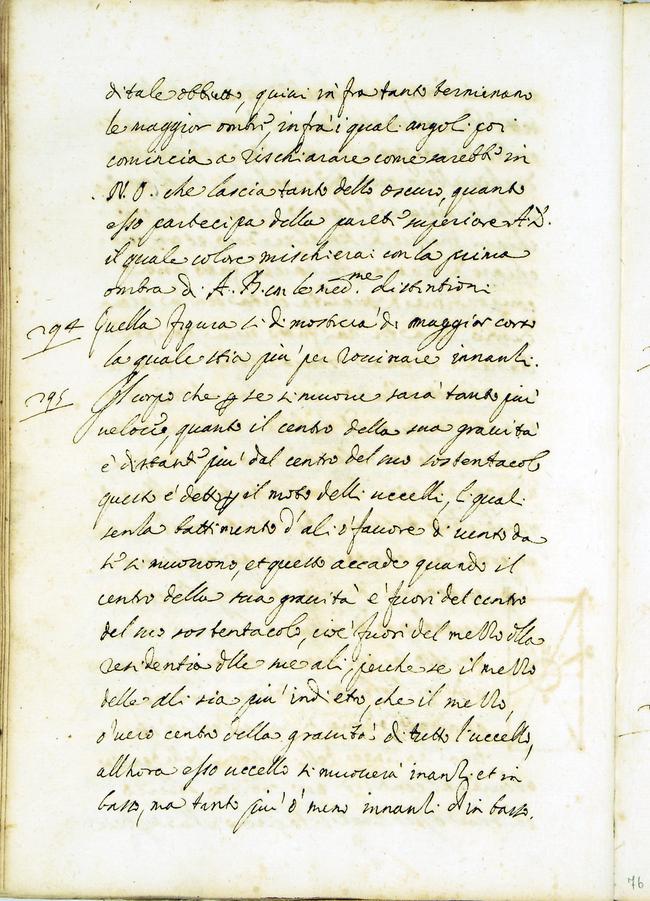 di tale obbietto, quivi in fra tanto terminano
le maggior ombre, infra i quai angoli poi
comincia a rischiarare come sarebbe in
N. O. che lascia tanto dello oscuro, quanto
esso partecipa della parete superiore A D.
il quale colore mischierai con la prima
ombra di A. B. con le med.me distintioni
294 Quella figura si dimostrera di maggior corso
la quale stia piu' per roccinare innanzi.
295 Il corpo che p se si muove sara' tanto piu'
veloce, quanto il centro della sua gravità
è distante piu' dal centro del suo sostentacolo
questo e' detto p il moto delli uccelli, li quali
senza battimento d'ali o' favore di vento da
se si muovono, et questo accade quando il
centro della sua gravità e' fuori del centro
del suo sostentacolo, cioe' fuori del mezzo della
residentia delle sue ali, perche se il mezzo
delle ali sia piu' indietro, che il mezzo,
o' vero centro della gravità di tutto l'uccello,
allhora esso uccello si muovera' inanzi et in
basso, ma tanto piu' o' meno innanzi che in basso.
76